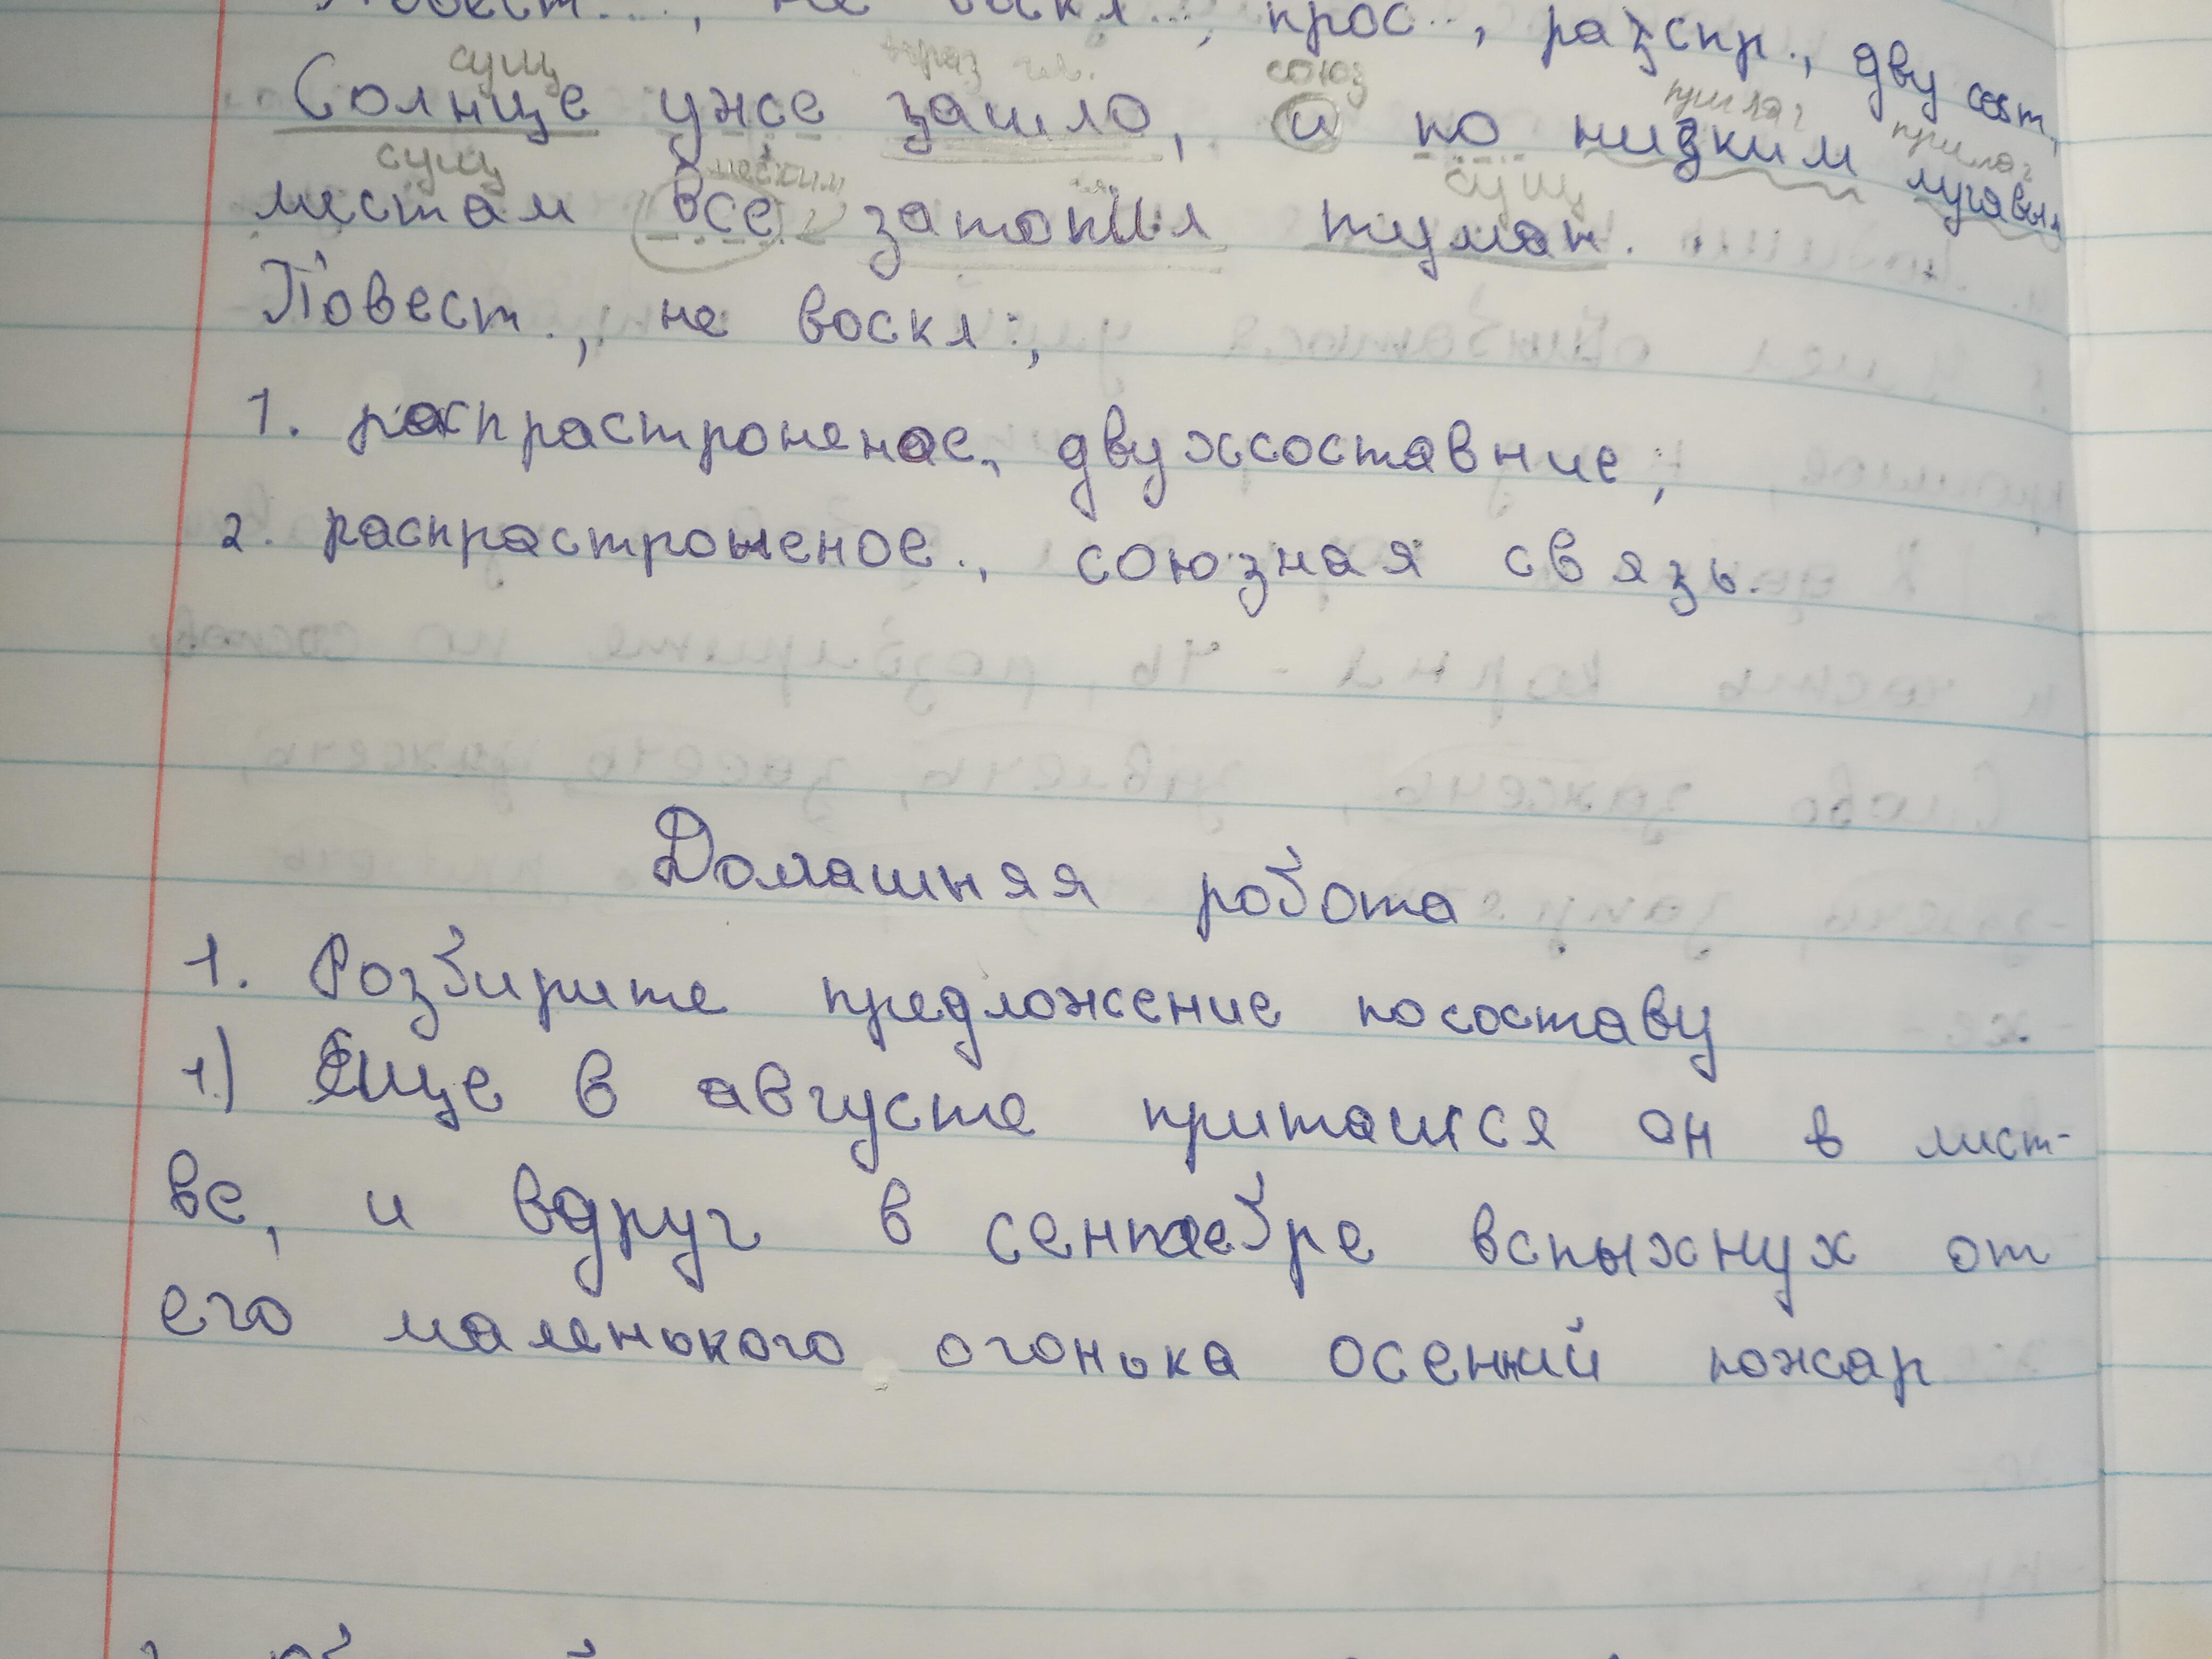 не воскл.., прос.., разспр., двусост,
сущ глаз гл. союз прилаг прилаг
Солнце уже зашло, и по низким луговым
сущ местоим гл сущ
местам все затопил туман.
Повест., не воскл.,
1. распрастроненое., двухсоставние,
2. распрастроненое., союзная связь.
Домашняя робота
1. Розбирите предложение посоставу
1) Еще в августе притаился он в лист-
ве, и вдруг в сентебре вспыхнух от
его маленького огонька осенний пожар